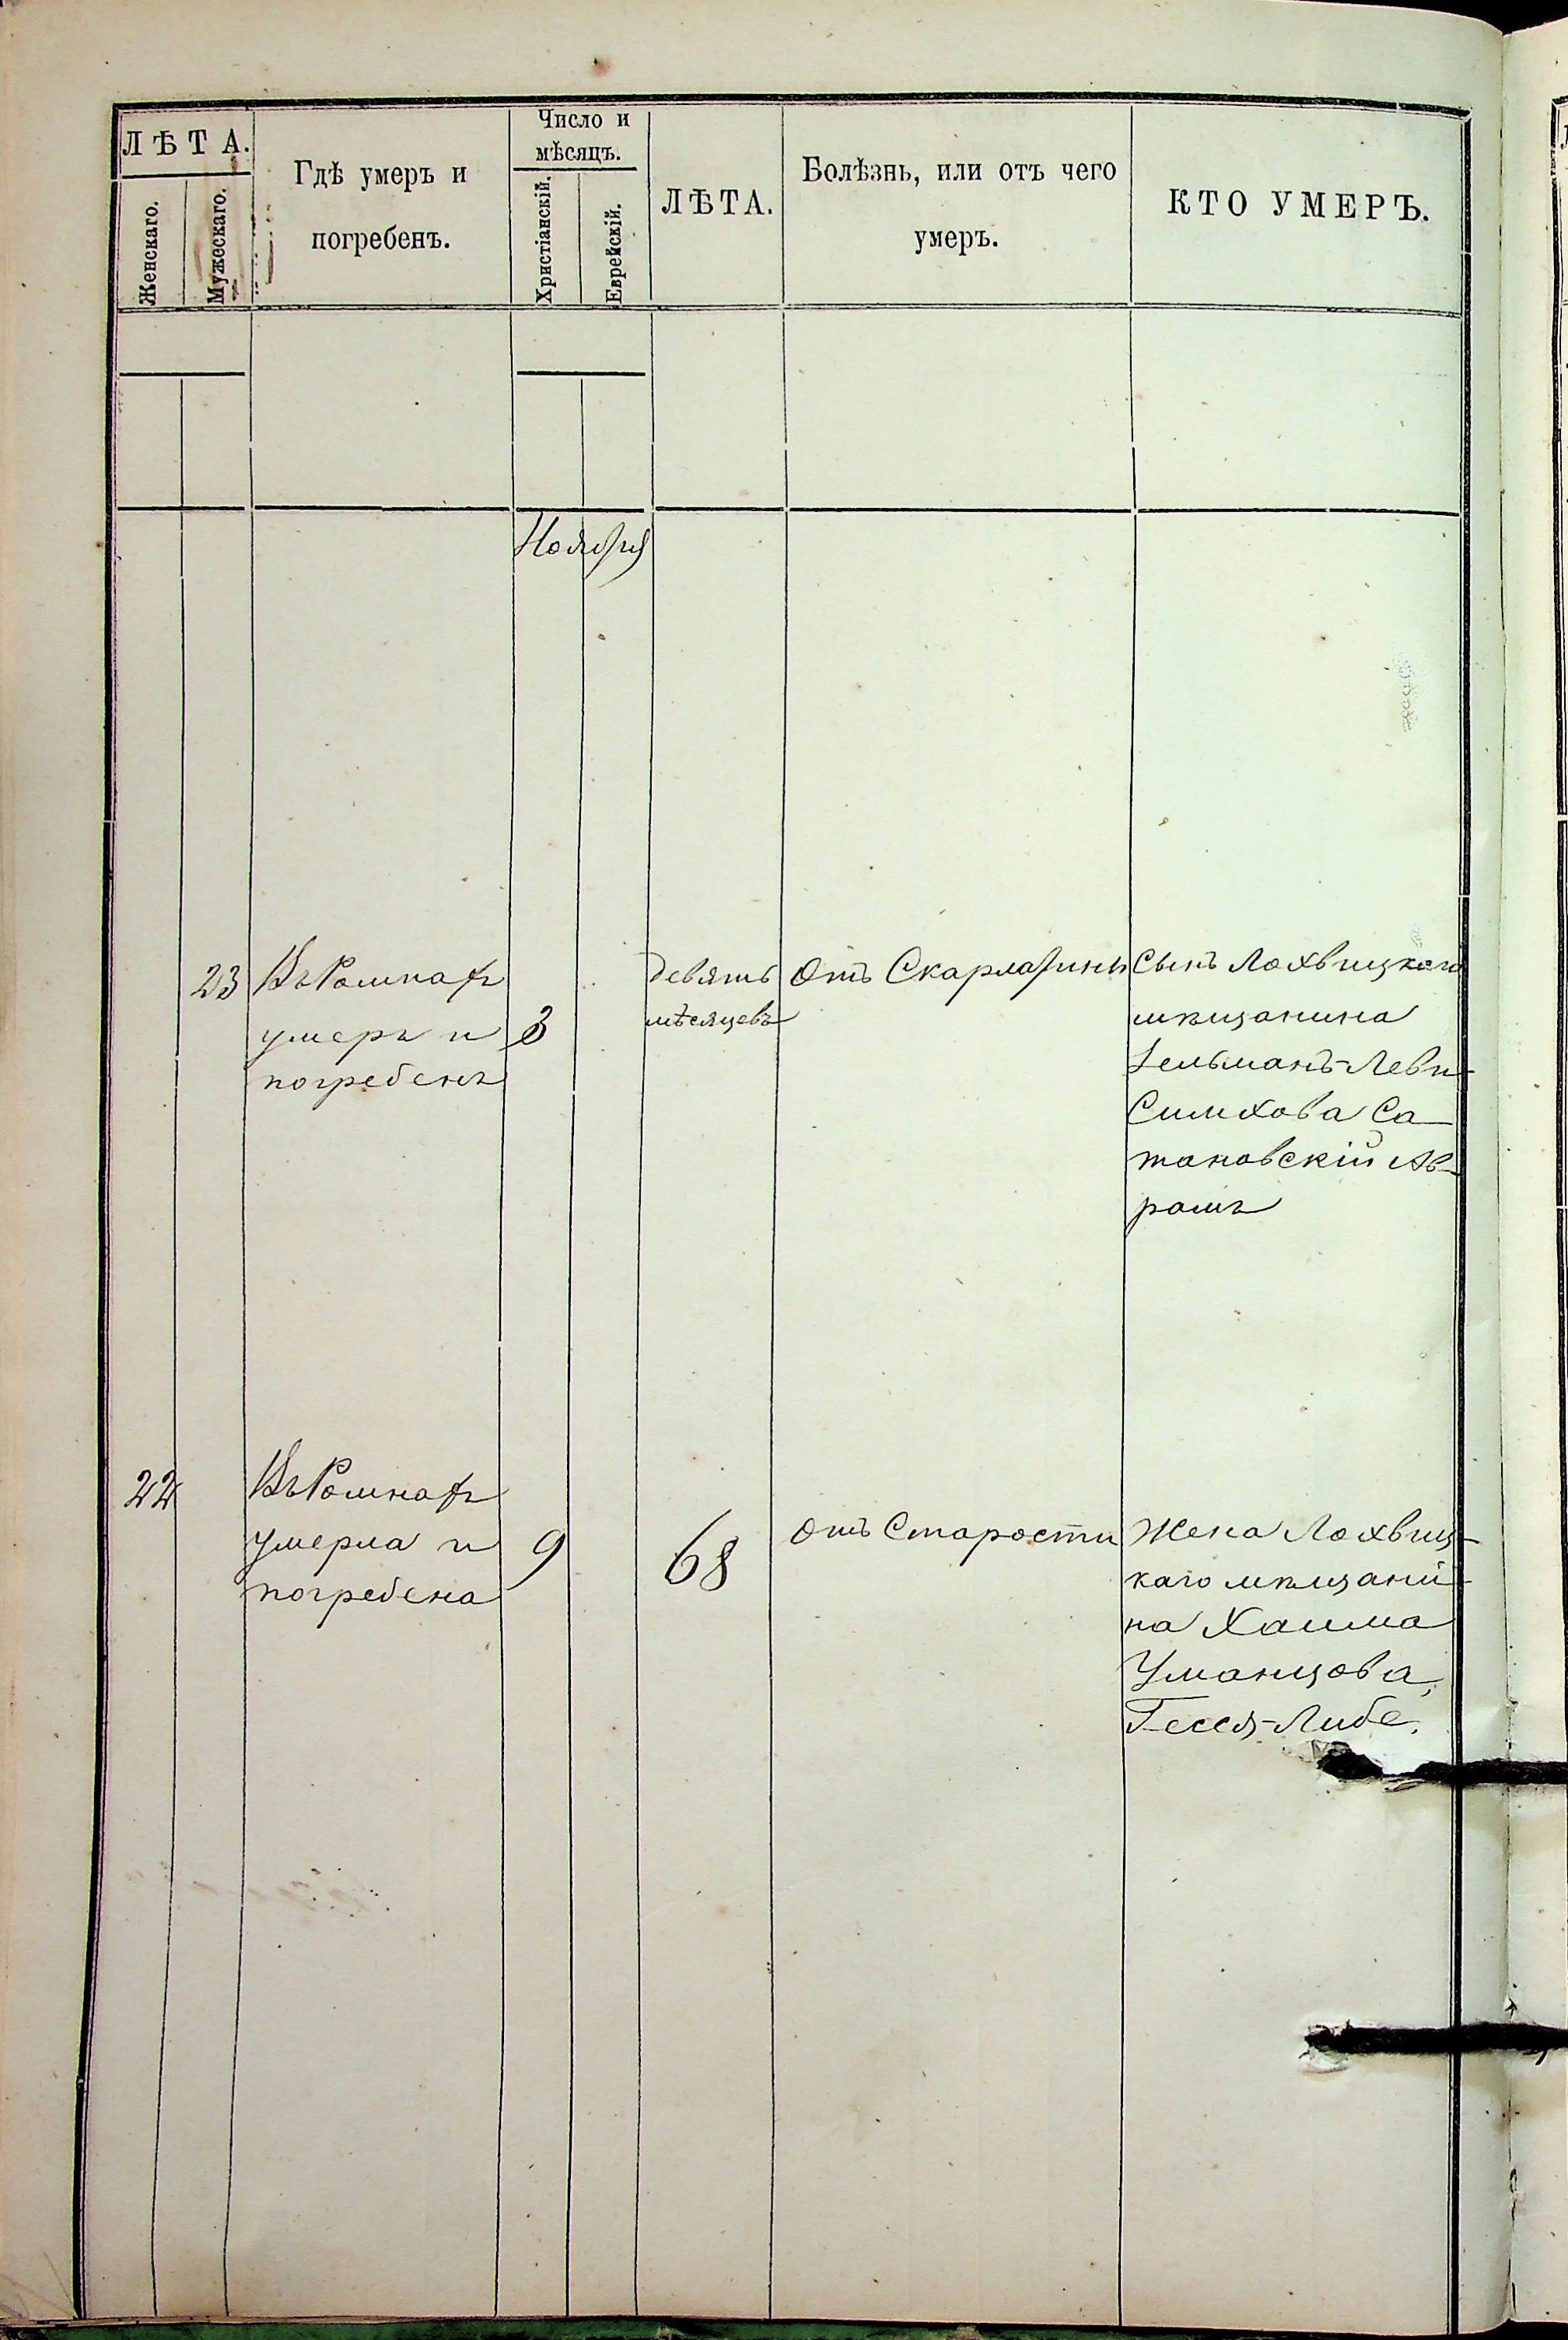 ЛѢТА.
Женскаго.
Мужескаго.
Гдѣ умеръ и
погребенъ.
Число и
мѣсяцъ.
Христіанскій.
Еврейскій.
ЛѢТА.
Болѣзнь, или отъ чего
умеръ.
КТО УМЕРЪ.
Ноября
23
Въ Ромнахъ
умеръ и
погребенъ
3
девять
мѣсяцевъ
Отъ Скарлатины
Сынъ Лохвицкаго
мѣщанина
Зельманъ-Леви-
Симхова Са-
тановскій Ав-
рамъ
22
Въ Ромнахъ
умерла и
погребена
9
68
Отъ Старости
Жена Лохвиц-
каго мѣщани-
на Хаима
Уманцова,
Гесся-Либе.